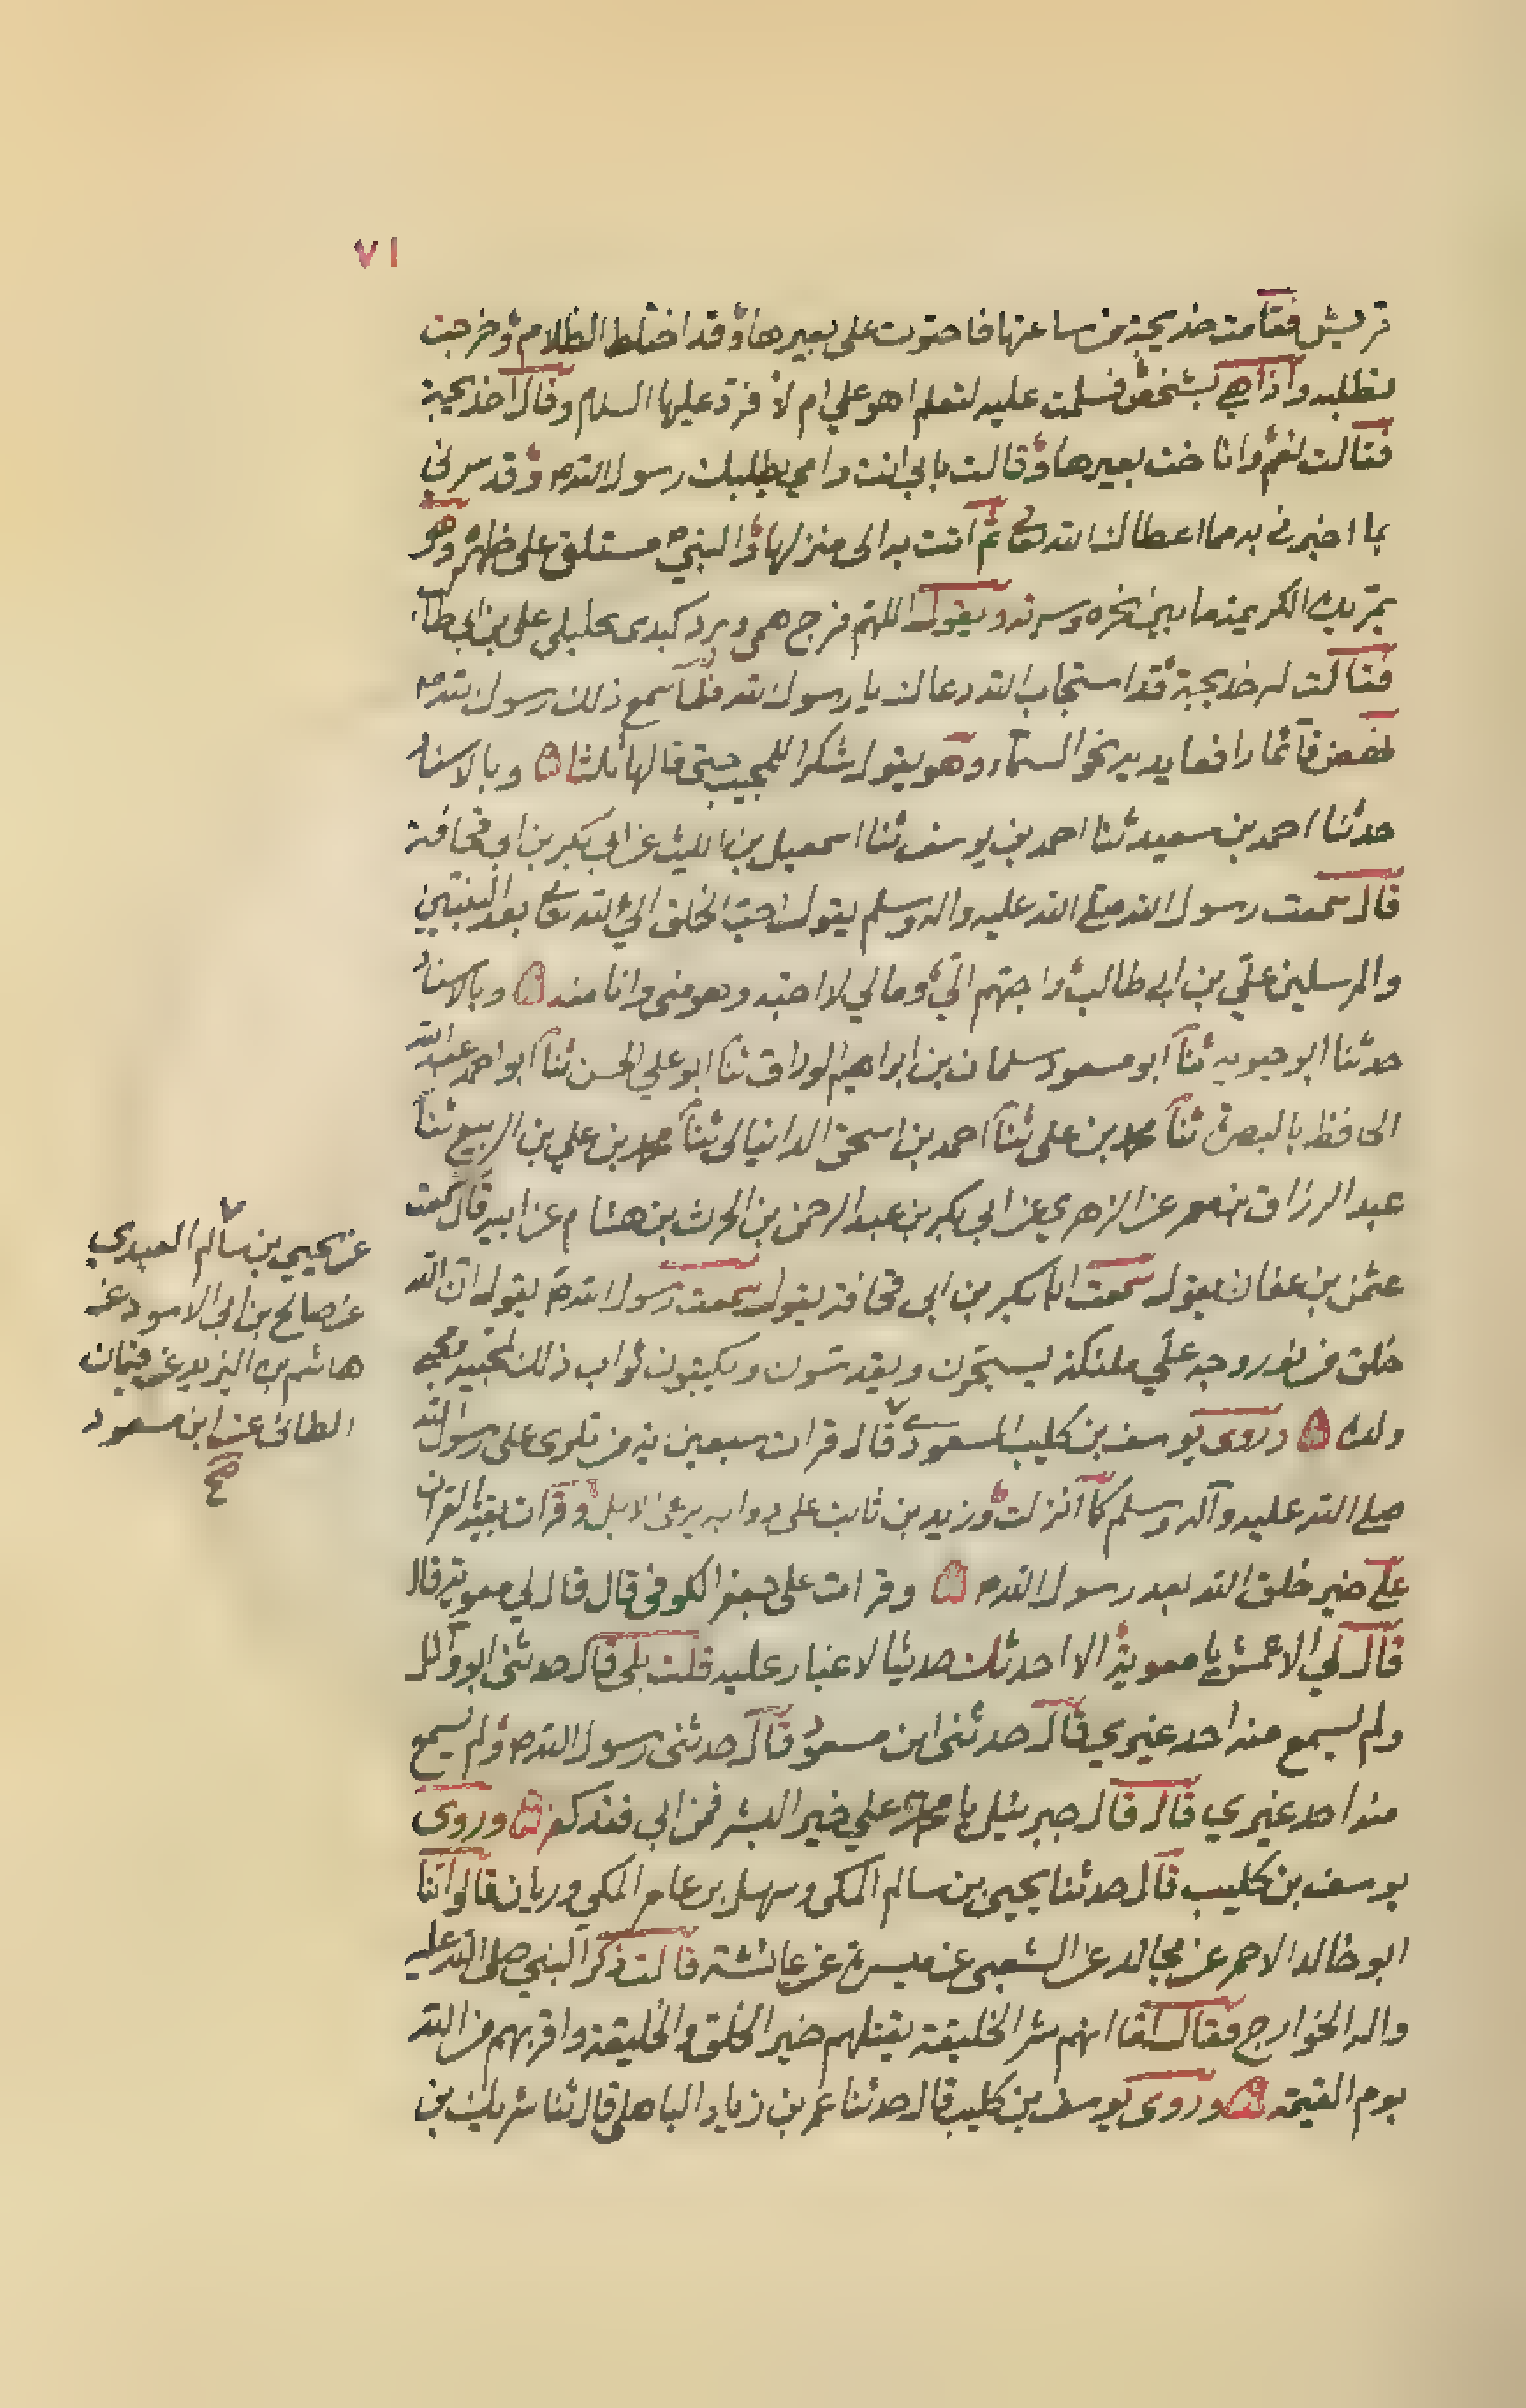 ٧١
قريش فقامت خديجة من ساعتها فاحتوت على بعيرها وقد اختلط الظلام وخرجت
تطلبه واذا هي بشخص فسلمت عليه لتعلم اهو علي ام لا فرد عليها السلام وقال اخديجة
فقالت نعم واناخت بعيرها وقالت بابي انت وامي يطلبك رسول الله ص وقد سرني
بما اخبرني به مما اعطاك الله تعالى ثم اتت به الى منزلها والنبي ص مستلق على ظهره وهو
يمر يده الكريمة ما بين نحره وسرته ويقول اللهم فرج همي وبرد كبدي بخليلي علي بن ابي طا
فقالت له خديجة قد استجاب الله دعاك يا رسول الله فلما سمع ذلك رسول الله ص
نهض قائما رافعا يديه نحو السماء وهو يقول شكرا للمجيب حتى قالها ثلثا وبالاسناد
حدثنا احمد بن سعيد ثنا احمد بن يوسف ثنا اسمعيل بن الليث عن ابي بكر بن ابي قحافة
قال سمعت رسول الله صلى الله عليه واله وسلم يقول احب الخلق الى الله تعالى بعد النبيين
والمرسلين علي بن ابي طالب واحبهم الي وما لي لا احبه وهو مني وانا منه وبالاسناد
حدثنا ابو حيويه ثنا ابو مسعود سلمان بن ابراهيم الوراق ثنا ابو علي الحسن ثنا ابو احمد عبد الله
الحافظ بالبصرة ثنا محمد بن علي ثنا احمد بن اسحق الدانيالي ثنا محمد بن علي بن الربيع ثنا
عبد الرزاق بن معمر عن الزهري عن ابي بكر بن عبد الرحمن بن الحرث بن هشام عن ابيه قال سمعت
عثمن بن عفان يقول سمعت ابا بكر بن ابي قحافة يقول سمعت رسول الله ص يقول ان الله
خلق من نور وجه علي ملئكة يسبحون ويقدسون ويكتبون ثواب ذلك لمحبيه ومحبي
ولده وروى يوسف بن كليب المسعودي قال قرات سبعين من تلوى على رسول الله
صلى الله عليه وآله وسلم كما انزلت وزيد بن ثابت على دوابه يرعى الابل وقرات بقية القران
على خير خلق الله بعد رسول الله ص وقرات على جعفر الكوفي قال قال لي معوية قال
قال لي الاعمش يا معوية الا احدثك حديثا لا غبار عليه قلت بلى قال حدثني ابو وائل
ولم يسمع منه احد غيري قال حدثني ابن مسعود قال حدثني رسول الله ص ولم يسمع
منه احد غيري قال قال جبرئيل يا محمد علي خير البشر فمن ابى فقد كفر وروى
يوسف بن كليب قال حدثنا يحيى بن سالم المكي وسهل بن عامر المكي وريان قالوا ثنا
ابو خالد الاحمر عن مجالد عن الشعبي عن ميسرة عن عائشة قالت ذكر النبي صلى الله عليه
واله الخوارج فقال انهم شر الخليقة يقتلهم خير الخلق والخليقة واقربهم من الله
يوم القيمة وروى يوسف بن كليب قال حدثنا عمر بن زياد الباهلي قال ثنا شريك بن
عن يحيى بن سالم العبدي
عن صالح بن ابي الاسود عن
هاشم بن البريد عن
الطائي عن ابن مسعود
صح